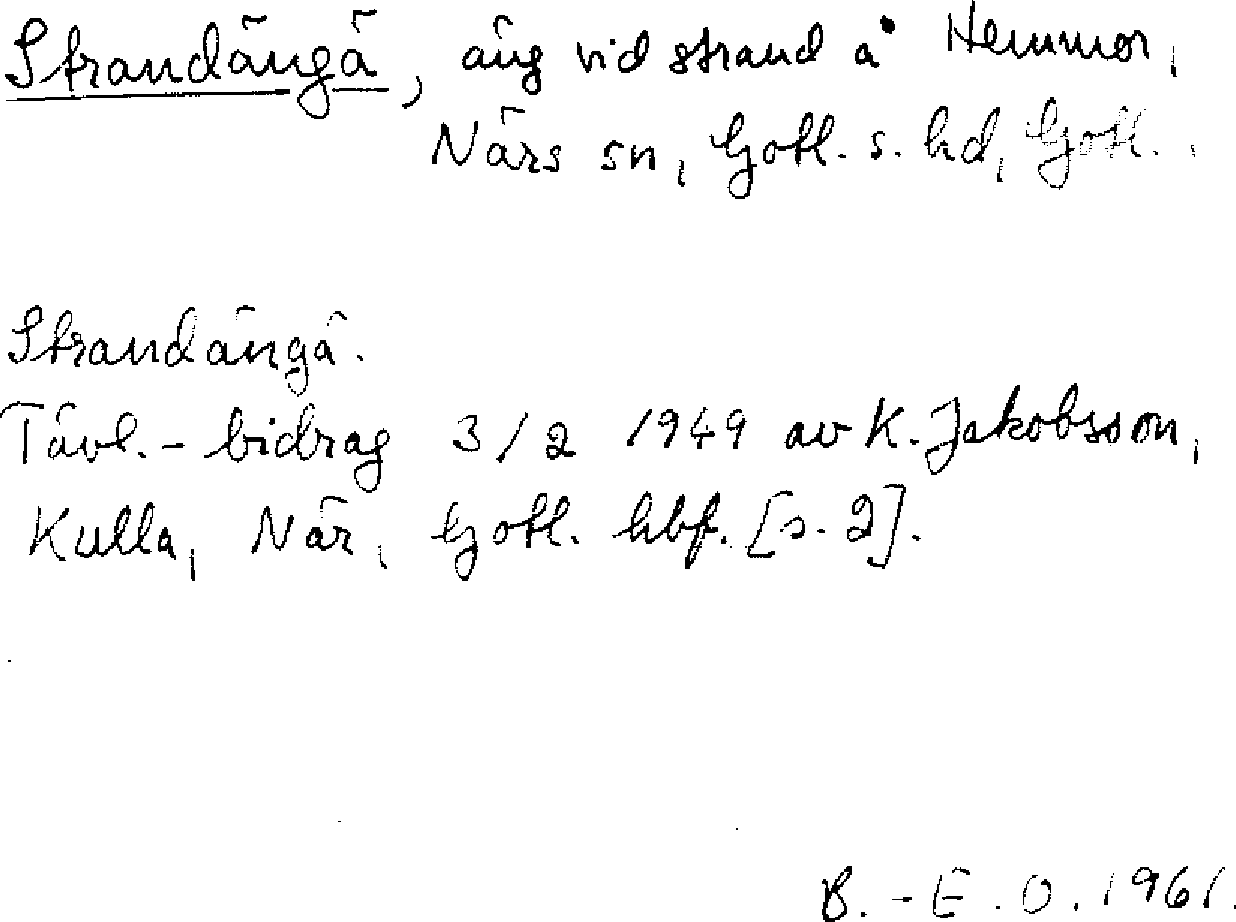 Strandängä, äng vid strand å Hemmor,
Närs sn, Gotl. s. hd, Gotl.
Strandängä.
Tävl.-bidrag 3/2 1949 av K. Jakobsson,
Kulla, När, Gotl. hbf. [s. 2].
B.-E. O. 1961.